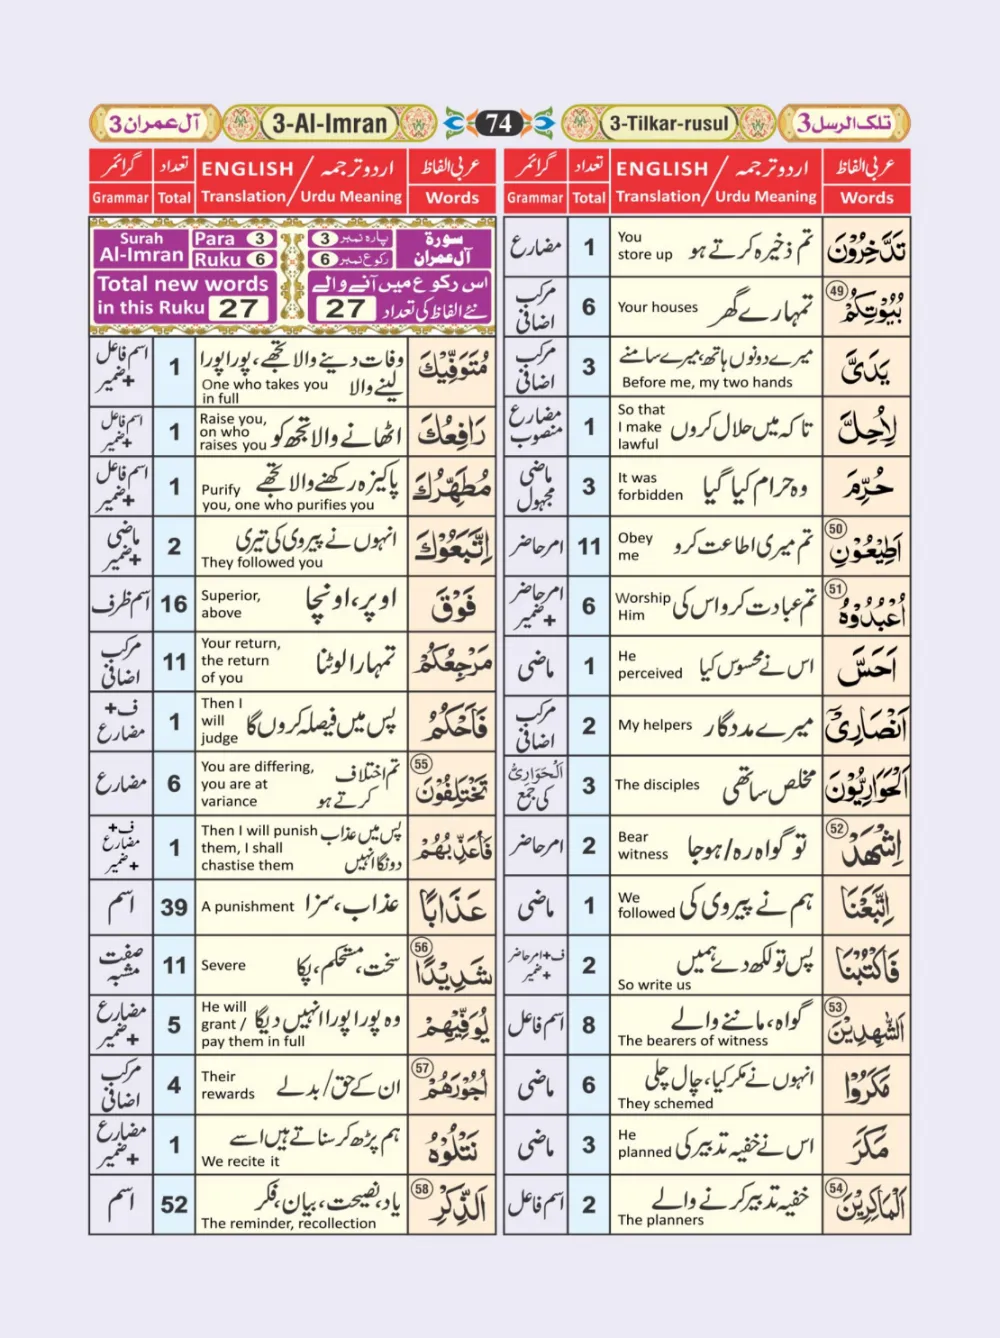 تلک الرسل 3
3-Tilkar-rusul
74
3-Al-Imran
آل عمران 3
عربی الفاظ اردو ترجمہ / ENGLISH تعداد گرائمر
Words Urdu Meaning / Translation Total Grammar
تَدَّخِرُوْنَ تم ذخیرہ کرتے ہو You store up 1 مضارع
بُيُوْتِكُمْ 49 تمہارے گھر Your houses 6 مرکب اضافی
يَدَيَّ میرے دونوں ہاتھ، میرے سامنے Before me, my two hands 3 مرکب اضافی
لِاُحِلَّ تاکہ میں حلال کروں So that I make lawful 1 مضارع منصوب
حُرِّمَ وہ حرام کیا گیا It was forbidden 3 ماضی مجہول
اَطِيْعُوْنِ 50 تم میری اطاعت کرو Obey me 11 امر حاضر
اُعْبُدُوْهُ 51 تم عبادت کرو اس کی Worship Him 6 امر حاضر + ضمیر
اَحَسَّ اس نے محسوس کیا He perceived 1 ماضی
اَنْصَارِيْٓ میرے مددگار My helpers 2 مرکب اضافی
اَلْحَوَارِيُّوْنَ مخلص ساتھی The disciples 3 اَلْحَوَارِيُّ کی جمع
اِشْهَدْ 52 تو گواہ رہ/ہو جا Bear witness 2 امر حاضر
اِتَّبَعْنَا ہم نے پیروی کی We followed 1 ماضی
فَاكْتُبْنَا پس تو لکھ دے ہمیں So write us 2 ف+امر حاضر + ضمیر
اَلشّٰهِدِيْنَ 53 گواہ، ماننے والے The bearers of witness 8 اسم فاعل
مَكَرُوْا انہوں نے مکر کیا، چال چلی They schemed 6 ماضی
مَكَرَ اس نے خفیہ تدبیر کی He planned 3 ماضی
اَلْمَاكِرِيْنَ 54 خفیہ تدبیر کرنے والے The planners 2 اسم فاعل
عربی الفاظ اردو ترجمہ / ENGLISH تعداد گرائمر
Words Urdu Meaning / Translation Total Grammar
سورة آل عمران پارہ نمبر 3 رکوع نمبر 6
Surah Al-Imran Para 3 Ruku 6
اس رکوع میں آنے والے نئے الفاظ کی تعداد 27
Total new words in this Ruku 27
مُتَوَفِّيْكَ وفات دینے والا تجھے، پورا پورا لینے والا One who takes you in full 1 اسم فاعل + ضمیر
رَافِعُكَ اٹھانے والا تجھ کو Raise you, on who raises you 1 اسم فاعل + ضمیر
مُطَهِّرُكَ پاکیزہ رکھنے والا تجھے Purify you, one who purifies you 1 اسم فاعل + ضمیر
اِتَّبَعُوْكَ انہوں نے پیروی کی تیری They followed you 2 ماضی + ضمیر
فَوْقَ اوپر، اونچا Superior, above 16 اسم ظرف
مَرْجِعُكُمْ تمہارا لوٹنا Your return, the return of you 11 مرکب اضافی
فَاَحْكُمُ پس میں فیصلہ کروں گا Then I will judge 1 ف+ مضارع
تَخْتَلِفُوْنَ 55 تم اختلاف کرتے ہو You are differing, you are at variance 6 مضارع
فَاُعَذِّبُهُمْ پس میں عذاب دونگا انہیں Then I will punish them, I shall chastise them 1 ف+ مضارع + ضمیر
عَذَابًا عذاب، سزا A punishment 39 اسم
شَدِيْدًا 56 سخت، مستحکم، پکا Severe 11 صفت مشبہ
يُوَفِّيْهِمْ وہ پورا پورا انہیں دیگا He will grant / pay them in full 5 مضارع + ضمیر
اُجُوْرَهُمْ 57 ان کے حق/بدلے Their rewards 4 مرکب اضافی
نَتْلُوْهُ ہم پڑھ کر سناتے ہیں اسے We recite it 1 مضارع + ضمیر
اَلذِّكْرِ 58 یاد، نصیحت، بیان، فکر The reminder, recollection 52 اسم